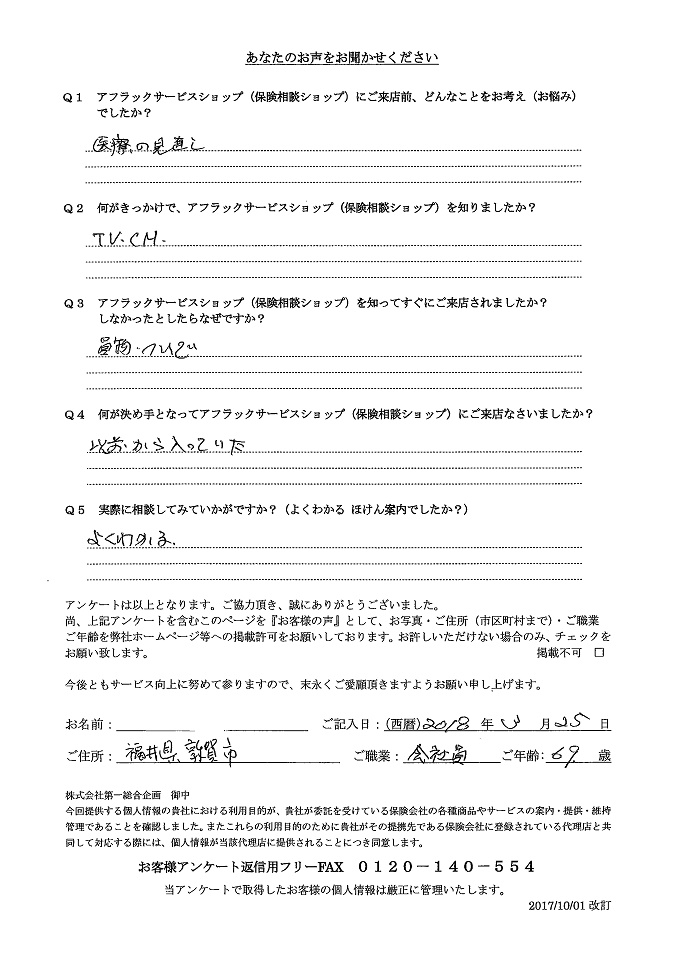 あなたのお声をお聞かせください
Q1 アフラックサービスショップ（保険相談ショップ）にご来店前、どんなことをお考え（お悩み）
でしたか？
医療の見直し
Q2 何がきっかけで、アフラックサービスショップ（保険相談ショップ）を知りましたか？
TV.CM.
Q3 アフラックサービスショップ（保険相談ショップ）を知ってすぐにご来店されましたか？
しなかったとしたらなぜですか？
買物.ついでに
Q4 何が決め手となってアフラックサービスショップ（保険相談ショップ）にご来店なさいましたか？
以前から入っていた
Q5 実際に相談してみていかがですか？（よくわかる ほけん案内でしたか？）
よくわかる.
アンケートは以上となります。ご協力頂き、誠にありがとうございました。
尚、上記アンケートを含むこのページを『お客様の声』として、お写真・ご住所（市区町村まで）・ご職業
ご年齢を弊社ホームページ等への掲載許可をお願いしております。お許しいただけない場合のみ、チェックを
お願い致します。 掲載不可 □
今後ともサービス向上に努めて参りますので、末永くご愛顧頂きますようお願い申し上げます。
お名前： ご記入日：(西暦)2018 年 月 25 日
ご住所： 福井県敦賀市 ご職業： 会社員 ご年齢： 69 歳
株式会社第一総合企画 御中
今回提供する個人情報の貴社における利用目的が、貴社が委託を受けている保険会社の各種商品やサービスの案内・提供・維持
管理であることを確認しました。またこれらの利用目的のために貴社がその提携先である保険会社に登録されている代理店と共
同して対応する際には、個人情報が当該代理店に提供されることにつき同意します。
お客様アンケート返信用フリーFAX 0120－140－554
当アンケートで取得したお客様の個人情報は厳正に管理いたします。
2017/10/01 改訂